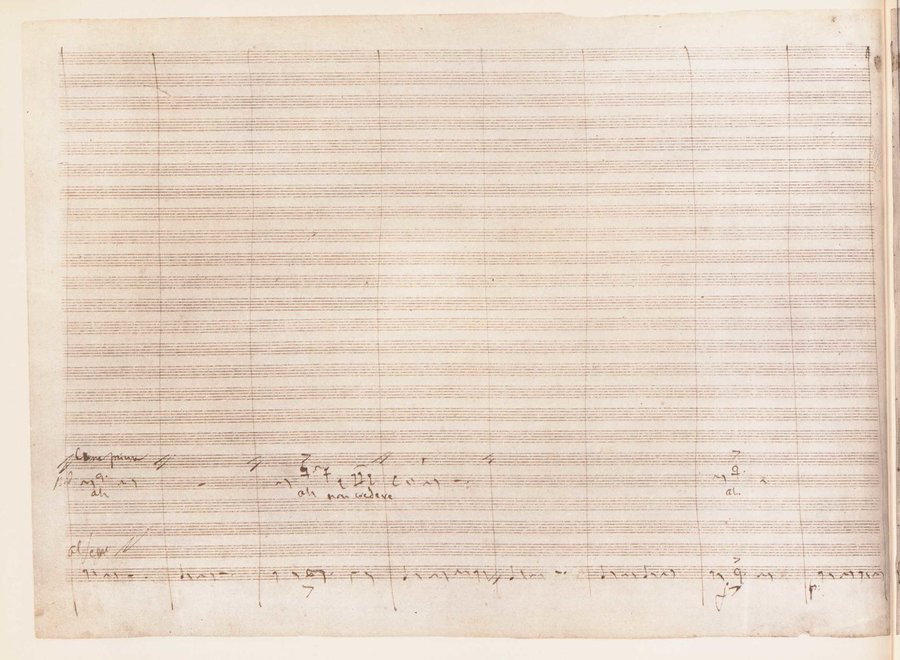 Come prima
ah ah non credere ah
al Segno
f p